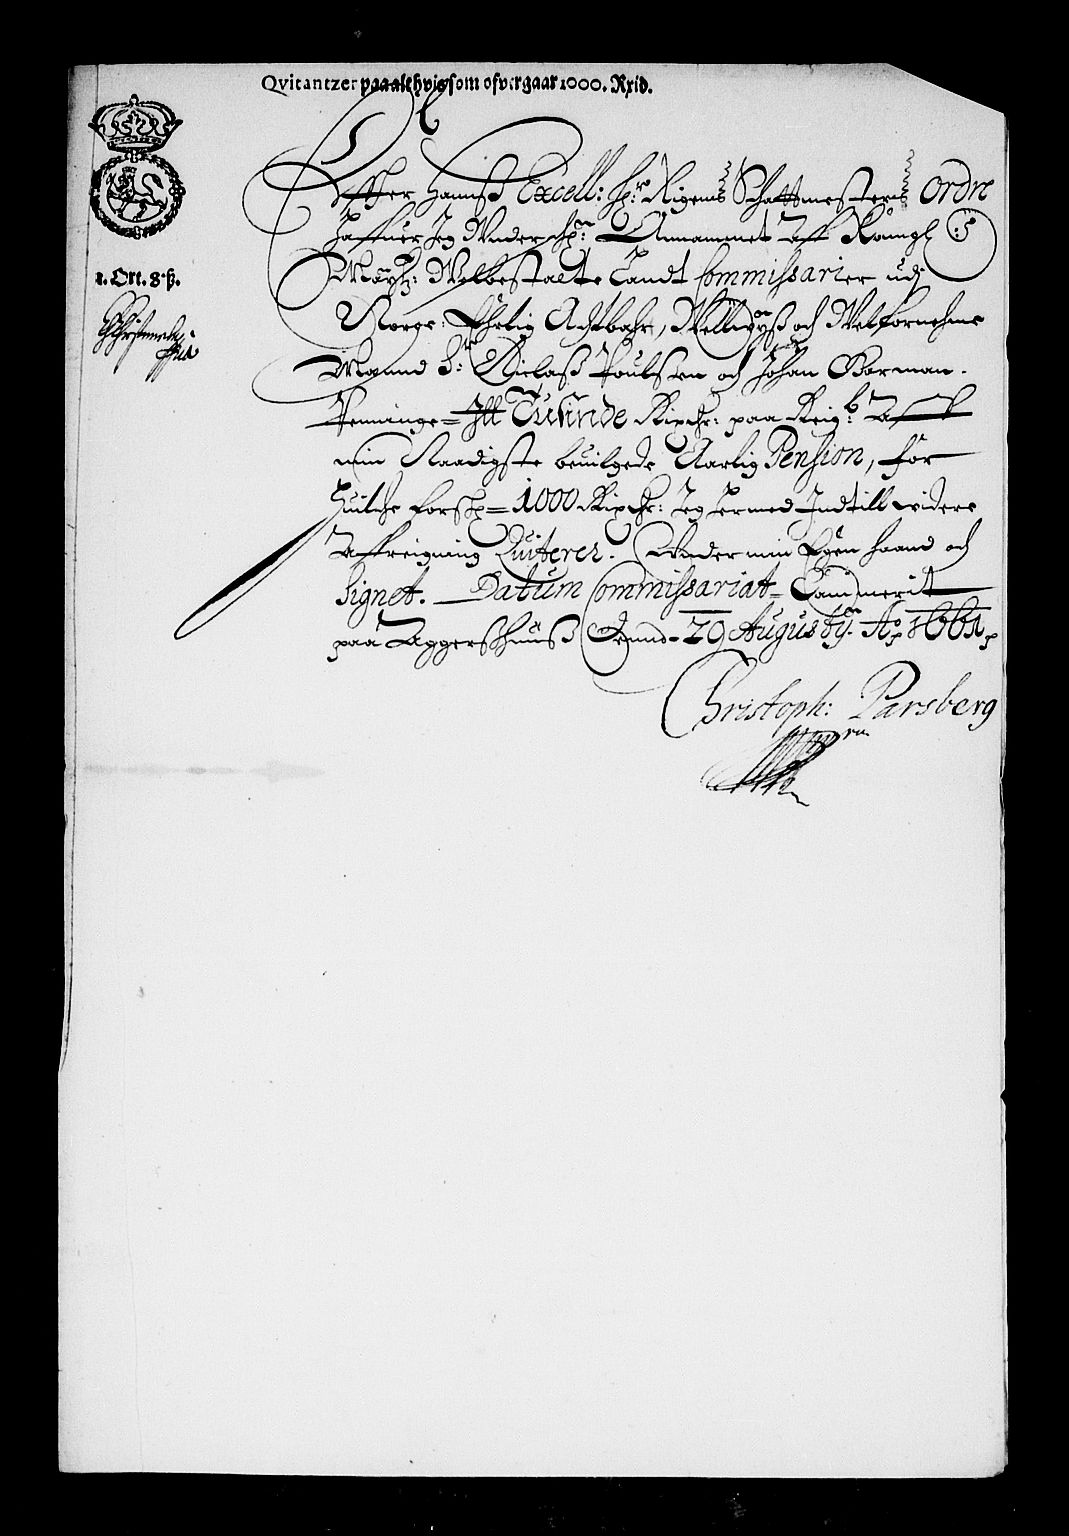 Qvitantzer paa alt hvis som ofvergaar 1000. Rxd.
1. Ort. 8. ß.
Effter Hannß Excell: Hr: Rigens Schattmesters Ordre
Haffuer Jeg Underschr: Annammet Aff Kongl:
Mayts: Welbestalte Landt Commissarier udj
Norge, Ehrlig Achtbahr, Wellwyß och Welfornehme
Mannd Hr: Niclaß Poulssen och Johan Borman.
Penninge = Itt Tusinde Rixdr: paa Reigb: Aff
min Naadigste beuilgede Aarlig Pension, for
huilche forsk = 1000 Rixdr: Jeg hermed Indtill videre
Affreigning Quiterer. Under min Egen haand och
Signet. Datum Commissariat = Cammerit
paa Aggershuuß Slvend. 29 Augustij. Ao 1661.
Christoph: Parsberg